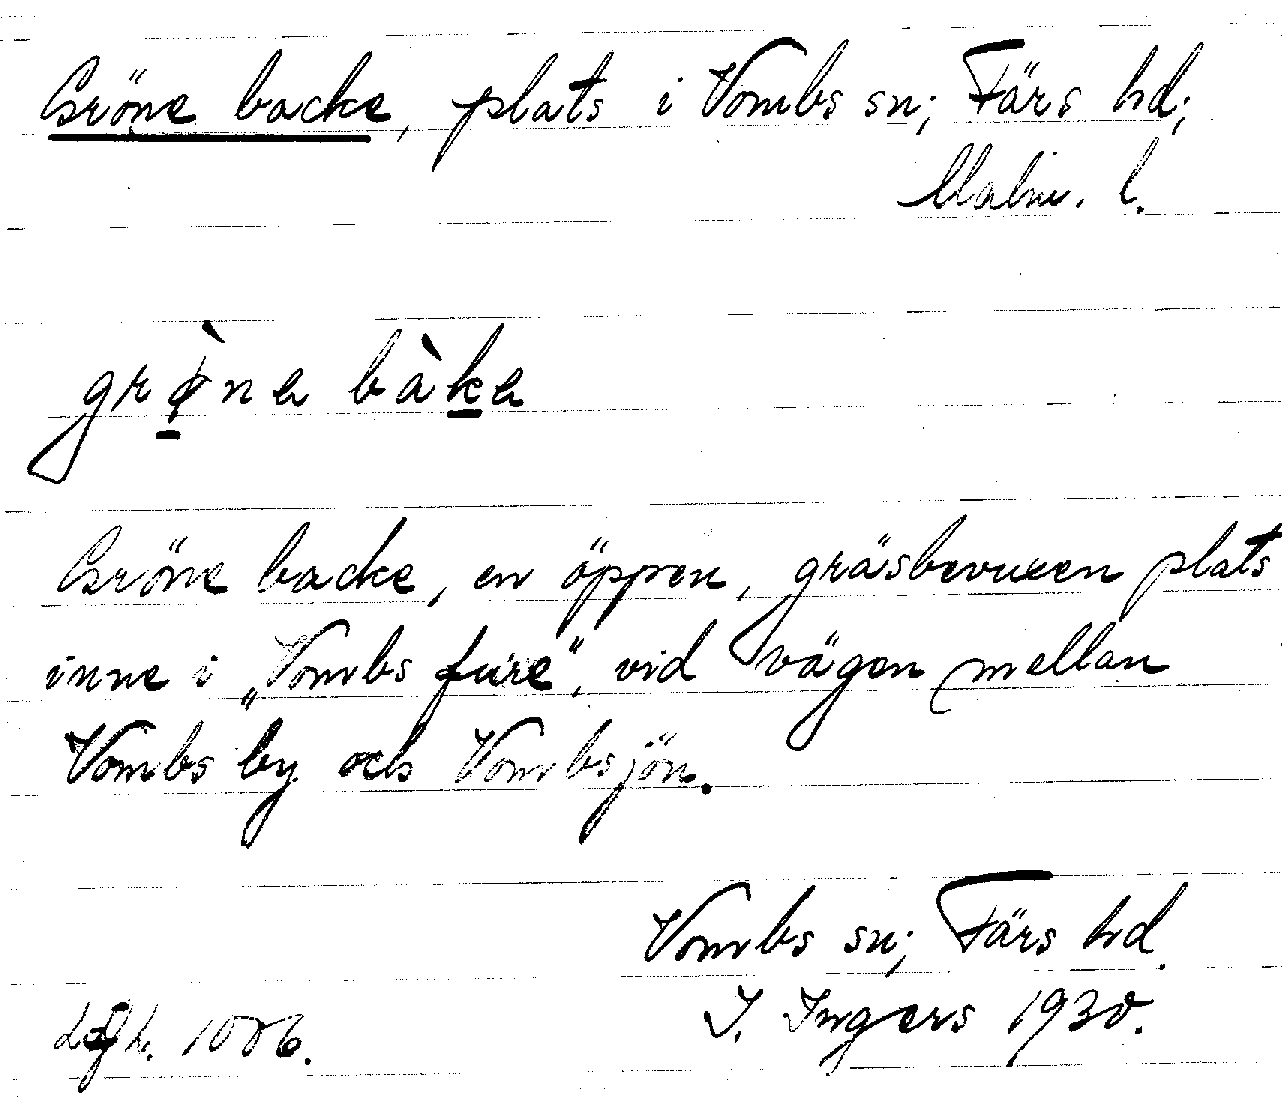 Gröne backe, plats i Vombs sn; Färs hd;
Malm. l.
grø̀na bàka
Gröne backe, en öppen, gräsbevuxen plats
inne i „Vombs fure", vid vägen mellan
Vombs by och Vombsjön.
Vombs sn; Färs hd.
I. Ingers 1930.
1006.